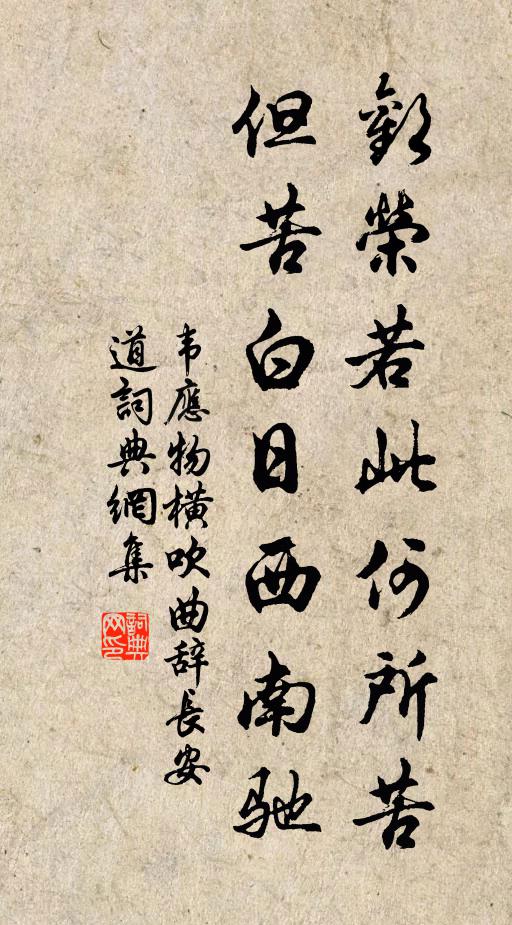 歡榮若此何所苦
但苦白日西南馳
韦應物橫吹曲辞長安
道詞典網集
詞典网印